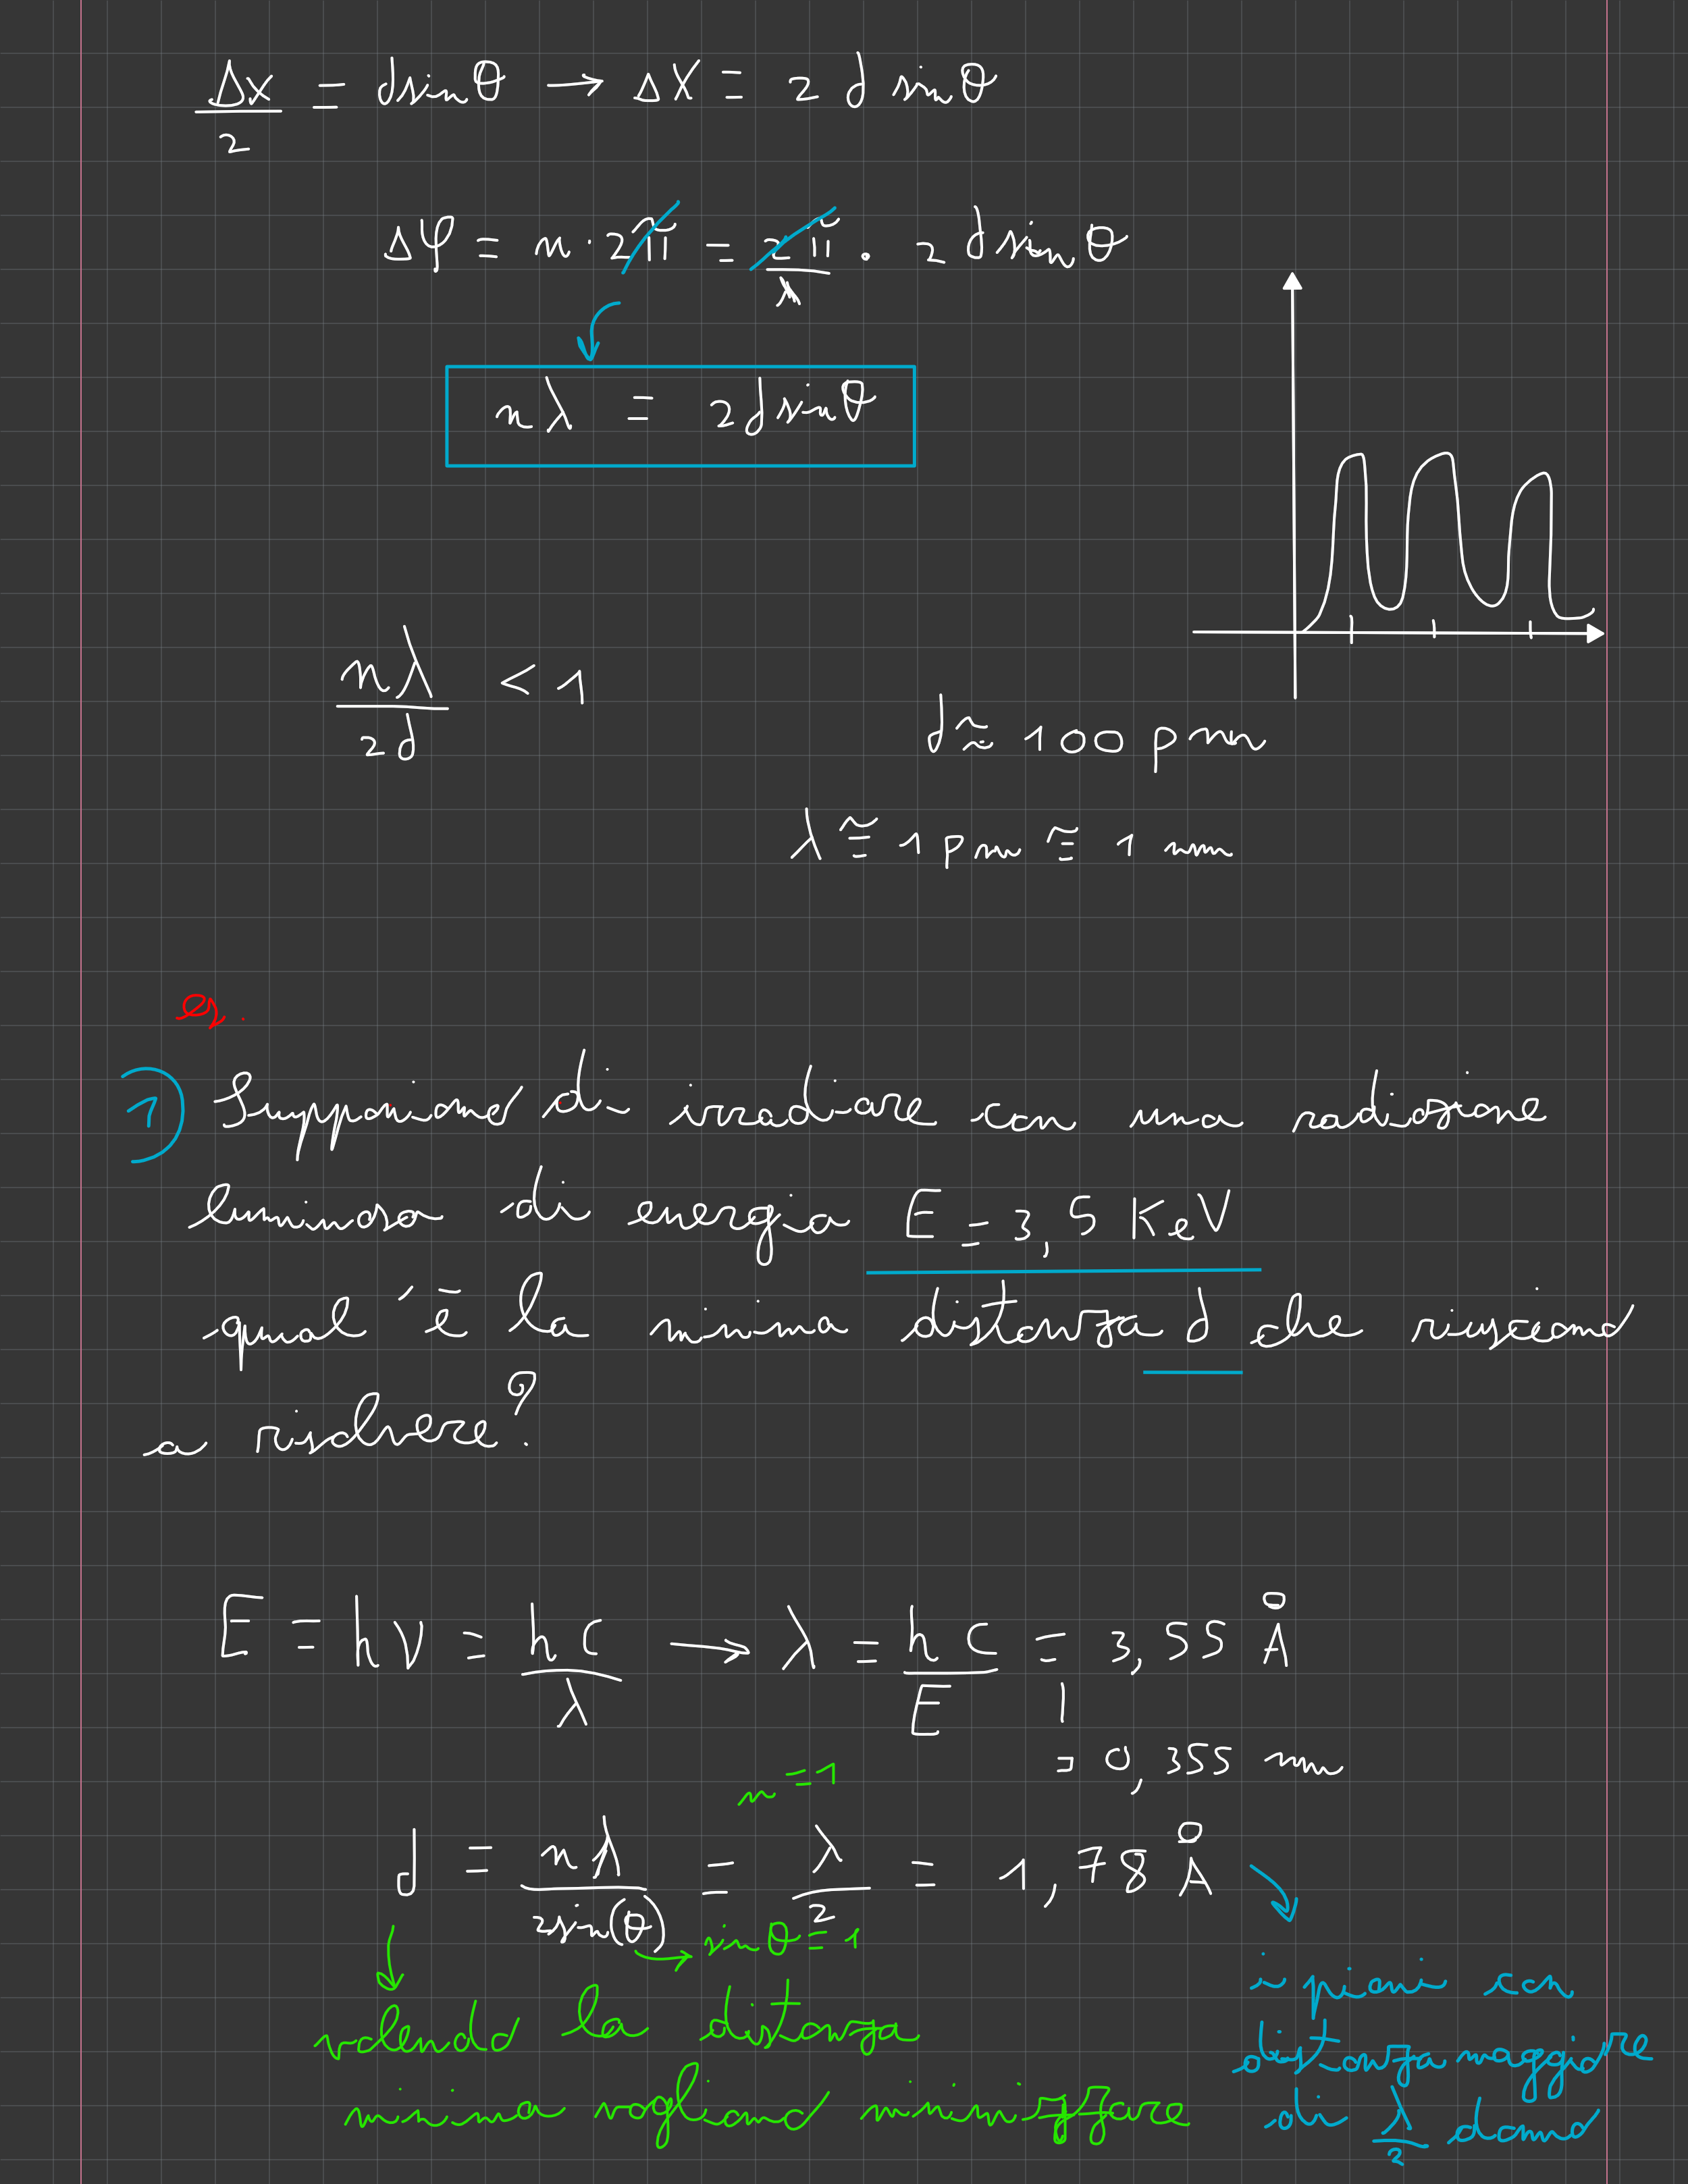 Δx/2 = d sinθ → Δx = 2 d sinθ
Δφ = n · 2π = 2π/λ · 2 d sinθ
nλ = 2d sinθ
nλ/2d < 1
d ≈ 100 pm
λ ≅ 1 pm ≅ 1 nm
es.
1) Supponiamo di irradiare con una radiazione
luminosa di energia E = 3,5 KeV
qual'è la minima distanza d che riusciamo
a risolvere?
E = hν = hc/λ → λ = hc/E = 3,55 Å
= 0,355 nm
n = 1
d = nλ/2sin(θ) = λ/2 = 1,78 Å
→ sinθ = 1
volendo la distanza
minima vogliamo minimizzare
i piani con
distanza maggiore
di λ/2 danno